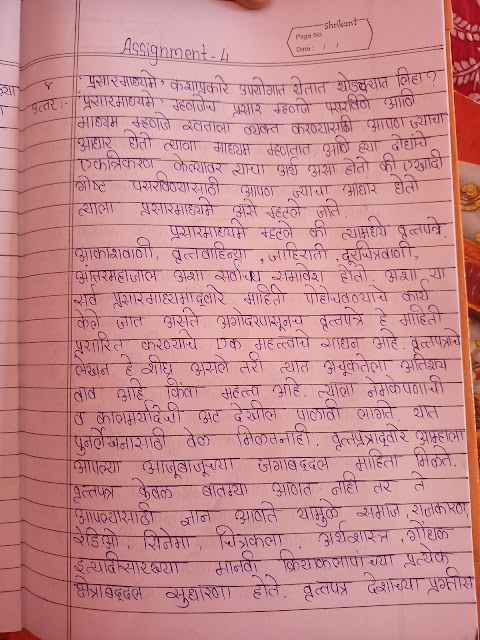 Shrikant
Page No.
Date : / /
Assignment - 4
४ 'प्रसारमाध्यमे' कशाप्रकारे उपयोगात येतात थोडक्यात लिहा ?
उत्तर :- 'प्रसारमाध्यमे' म्हणजेच प्रसार म्हणजे पसरविणे आणि
माध्यम म्हणजे स्वतःला व्यक्त करण्यासाठी आपण ज्याचा
आधार घेतो त्याला माध्यम म्हणतात. आणि ह्या दोघांचे
एकत्रिकरण केल्यावर त्याचा अर्थ असा होतो की एखादी
गोष्ट पसरविण्यासाठी आपण ज्याचा आधार घेतो
त्याला प्रसारमाध्यमे असे म्हटले जाते.
प्रसारमाध्यमे म्हटले की त्यामध्ये वृत्तपत्रे,
आकाशवाणी, वृत्तवाहिन्या, जाहिराती, दूरचित्रवाणी,
आंतरमहाजाल अशा सर्वांचा समावेश होतो. अशा या
सर्व प्रसारमाध्यमाद्वारे माहिती पोहोचवण्याचे कार्य
केले जात असते. अगोदरपासूनच वृत्तपत्रे हे माहिती
प्रसारित करण्याचे एक महत्त्वाचे साधन आहे. वृत्तपत्राचे
लेखन हे शीघ्र असले तरी त्यात अचूकतेला अतिशय
वाव आहे किंवा महत्त्व आहे. त्याला नेमकेपणाची
व कालमर्यादेची अट देखील पाळावी लागते यात
पुनर्लेखनासाठी वेळ मिळत नाही. वृत्तपत्राद्वारे आम्हाला
आपल्या आजूबाजूच्या जगाबद्दल माहिती मिळते.
वृत्तपत्र केवळ बातम्या आणत नाही तर ते
आपल्यासाठी ज्ञान आणते यामुळे समाज, राजकारण,
रेडिओ, सिनेमा, चित्रकला, अर्थशास्त्र,
इत्यादींसारख्या मानवी क्रियाकलापांच्या प्रत्येक
क्षेत्राबद्दल सुधारणा होते. वृत्तपत्र देशाच्या प्रगतीस